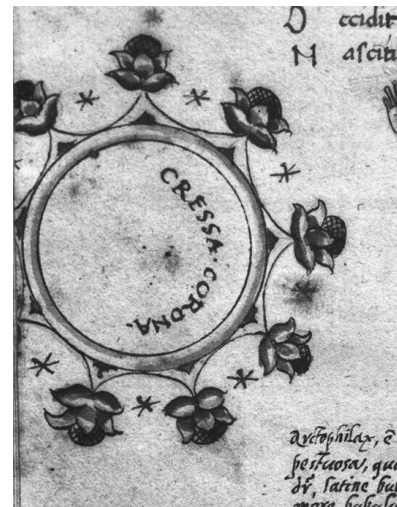 O ccidit
N ascit
CRESSA·CORONA.
Arctophilax, ē
pestuosa, qu
dr̄, latine bu